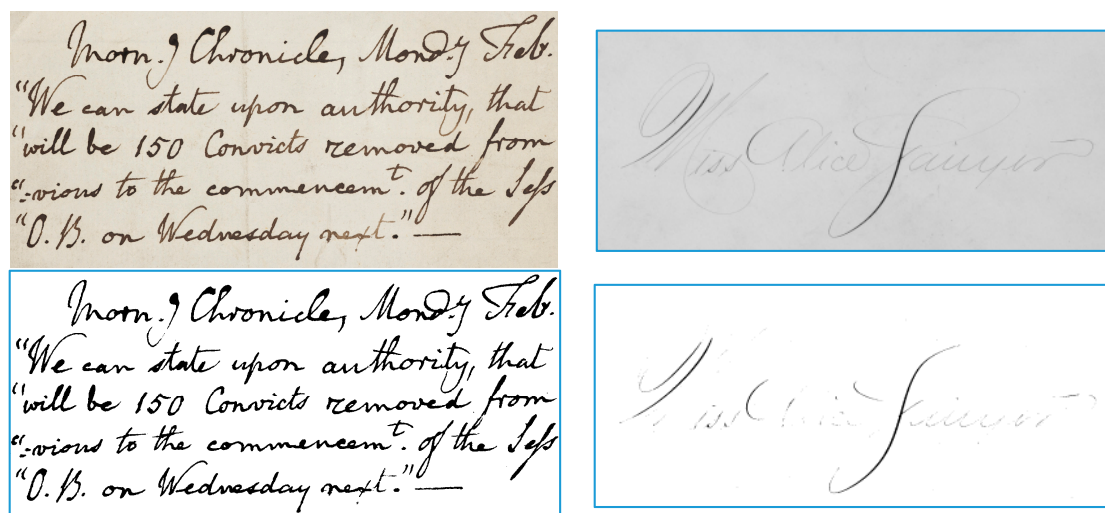 Morn.g Chronicle, Mond.y Feb.
"We can state upon authority, that
"will be 150 Convicts removed from
"=vious to the commencem.t of the Sess
"O. B. on Wednesday next."—
Miss Alice Sawyer
Morn.g Chronicle, Mond.y Feb.
"We can state upon authority, that
"will be 150 Convicts removed from
"=vious to the commencem.t of the Sess
"O. B. on Wednesday next."—
Miss Alice Sawyer